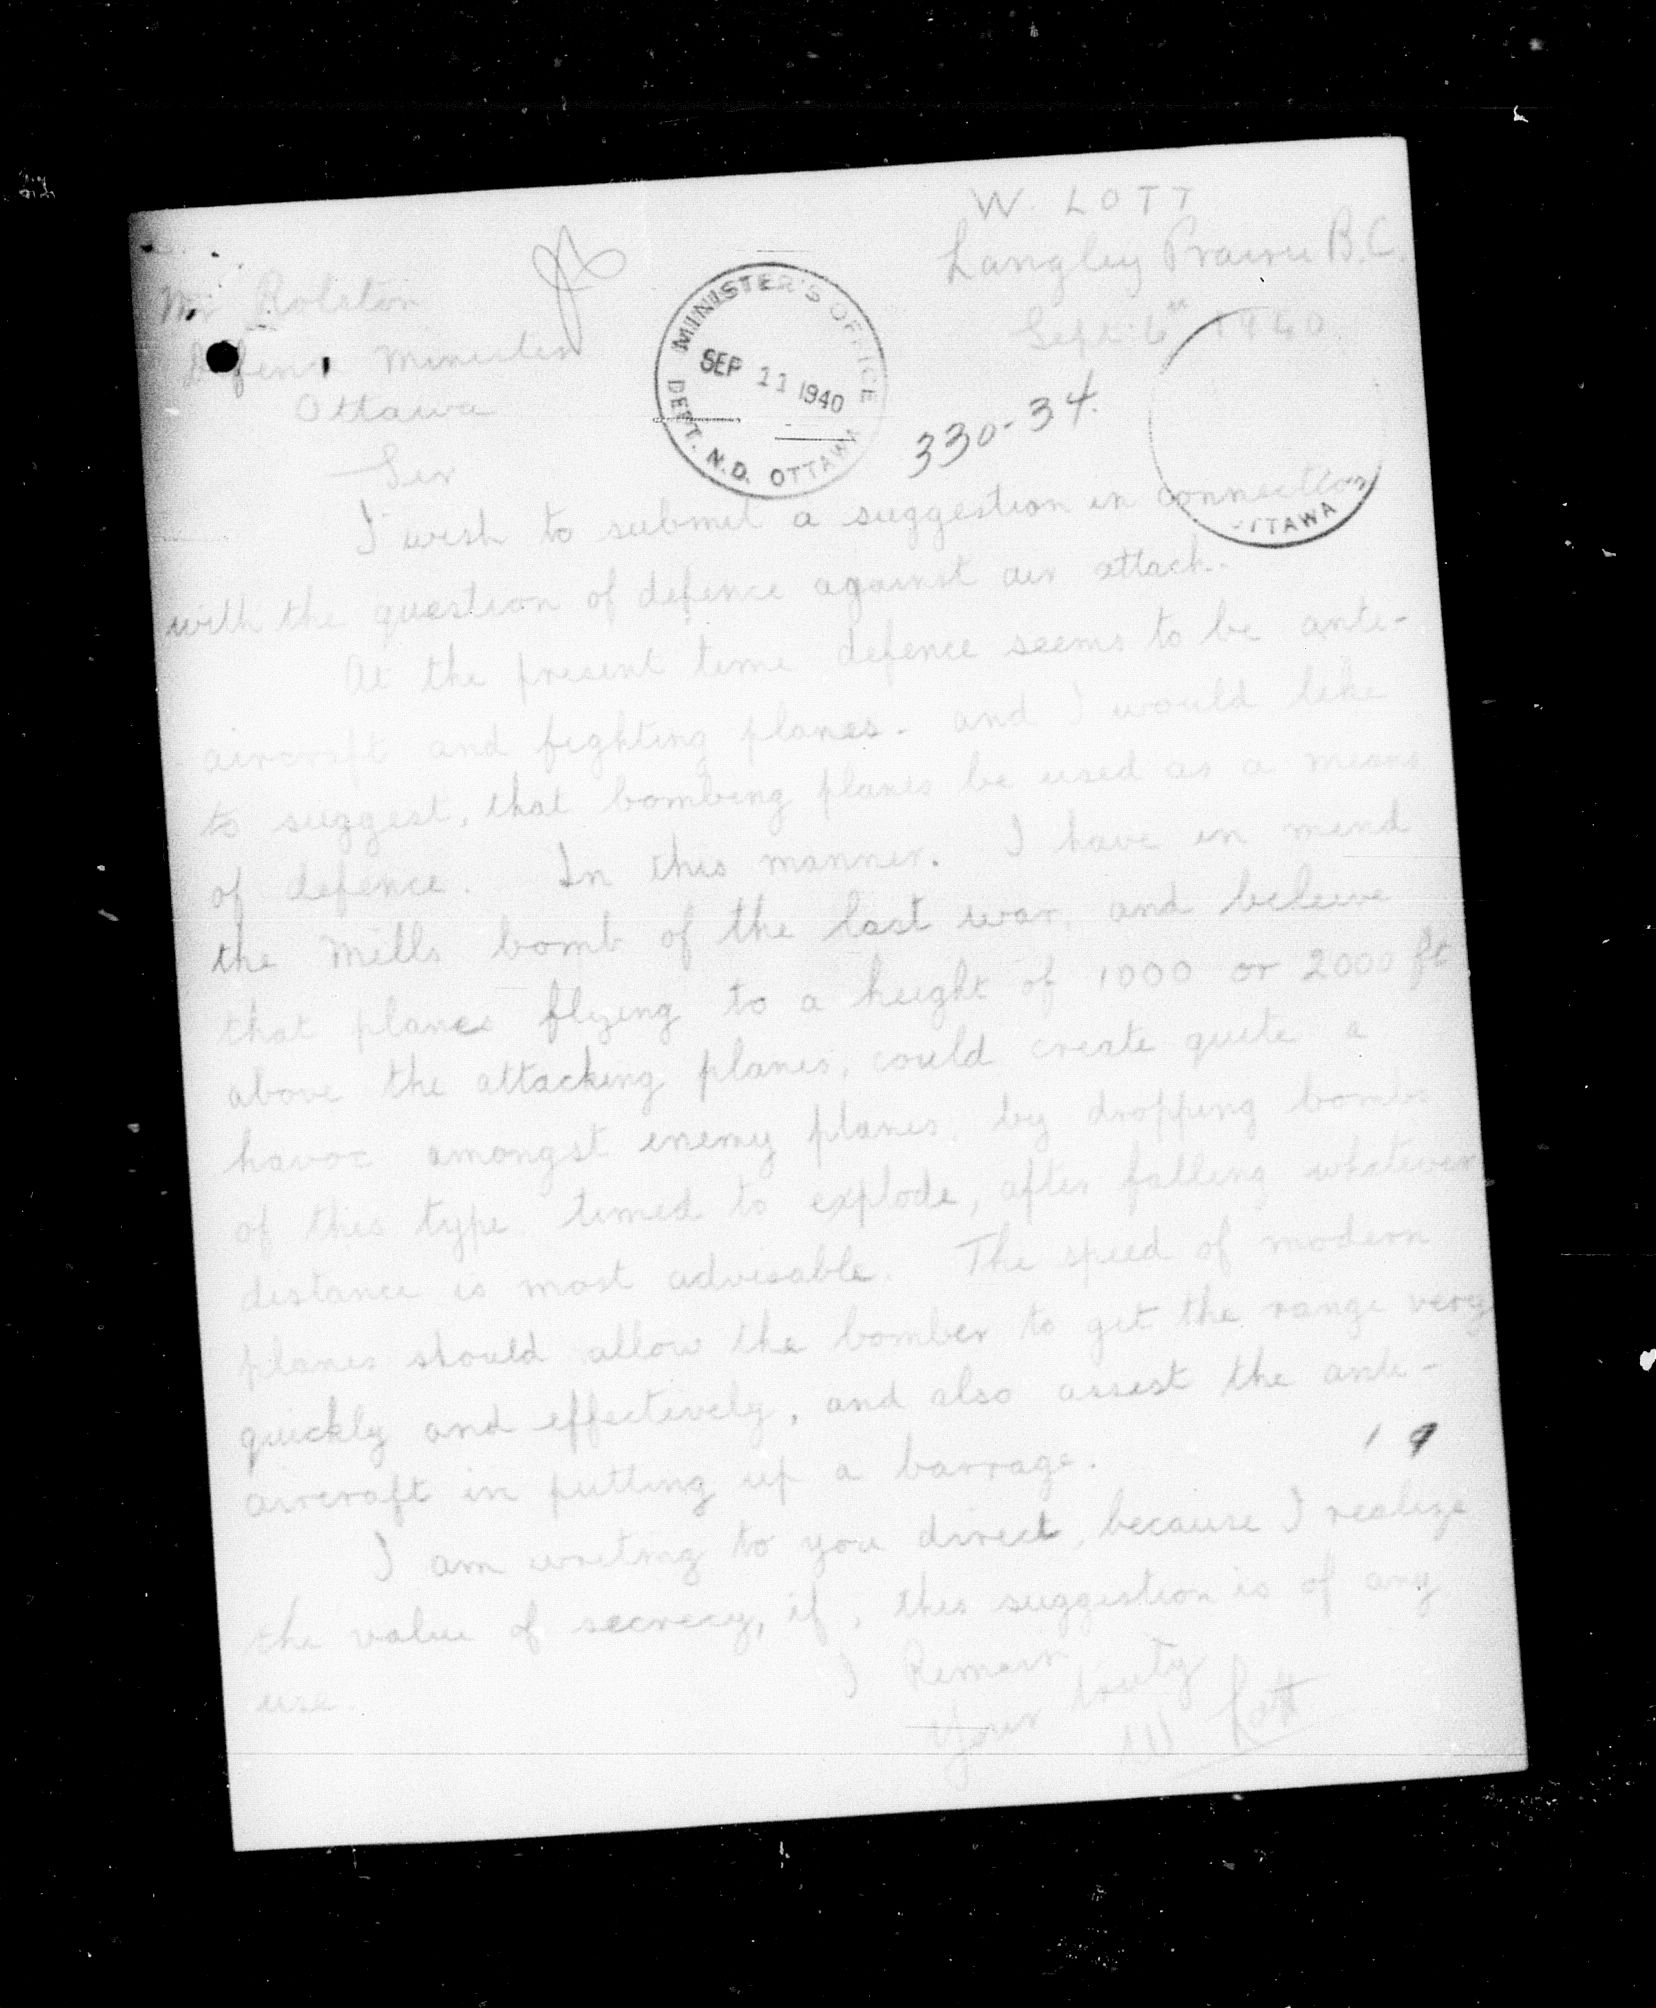 W. LOTT
Langley Prairie B.C.
Sept 6th 1940
Mr Rolston
Defence Minister
Ottawa
MINISTER'S OFFICE
SEP 11 1940
DEPT. N.D. OTTAWA
330-34.
OTTAWA
Sir
I wish to submit a suggestion in connection
with the question of defence against air attack.
At the present time defence seems to be anti-
aircraft and fighting planes. and I would like
to suggest, that bombing planes be used as a means
of defence. In this manner. I have in mind
the Mills bomb of the last war, and beleive
that planes flying to a height of 1000 or 2000 ft
above the attacking planes, could create quite a
havoc amongst enemy planes, by dropping bombs
of this type timed to explode, after falling whatever
distance is most advisable. The speed of modern
planes should allow the bomber to get the range very
quickly and effectively, and also assist the anti-
aircraft in putting up a barrage.
I am writing to you direct, because I realize
the value of secrecy, if, this suggestion is of any
use.
I Remain
Your truly
W Lott